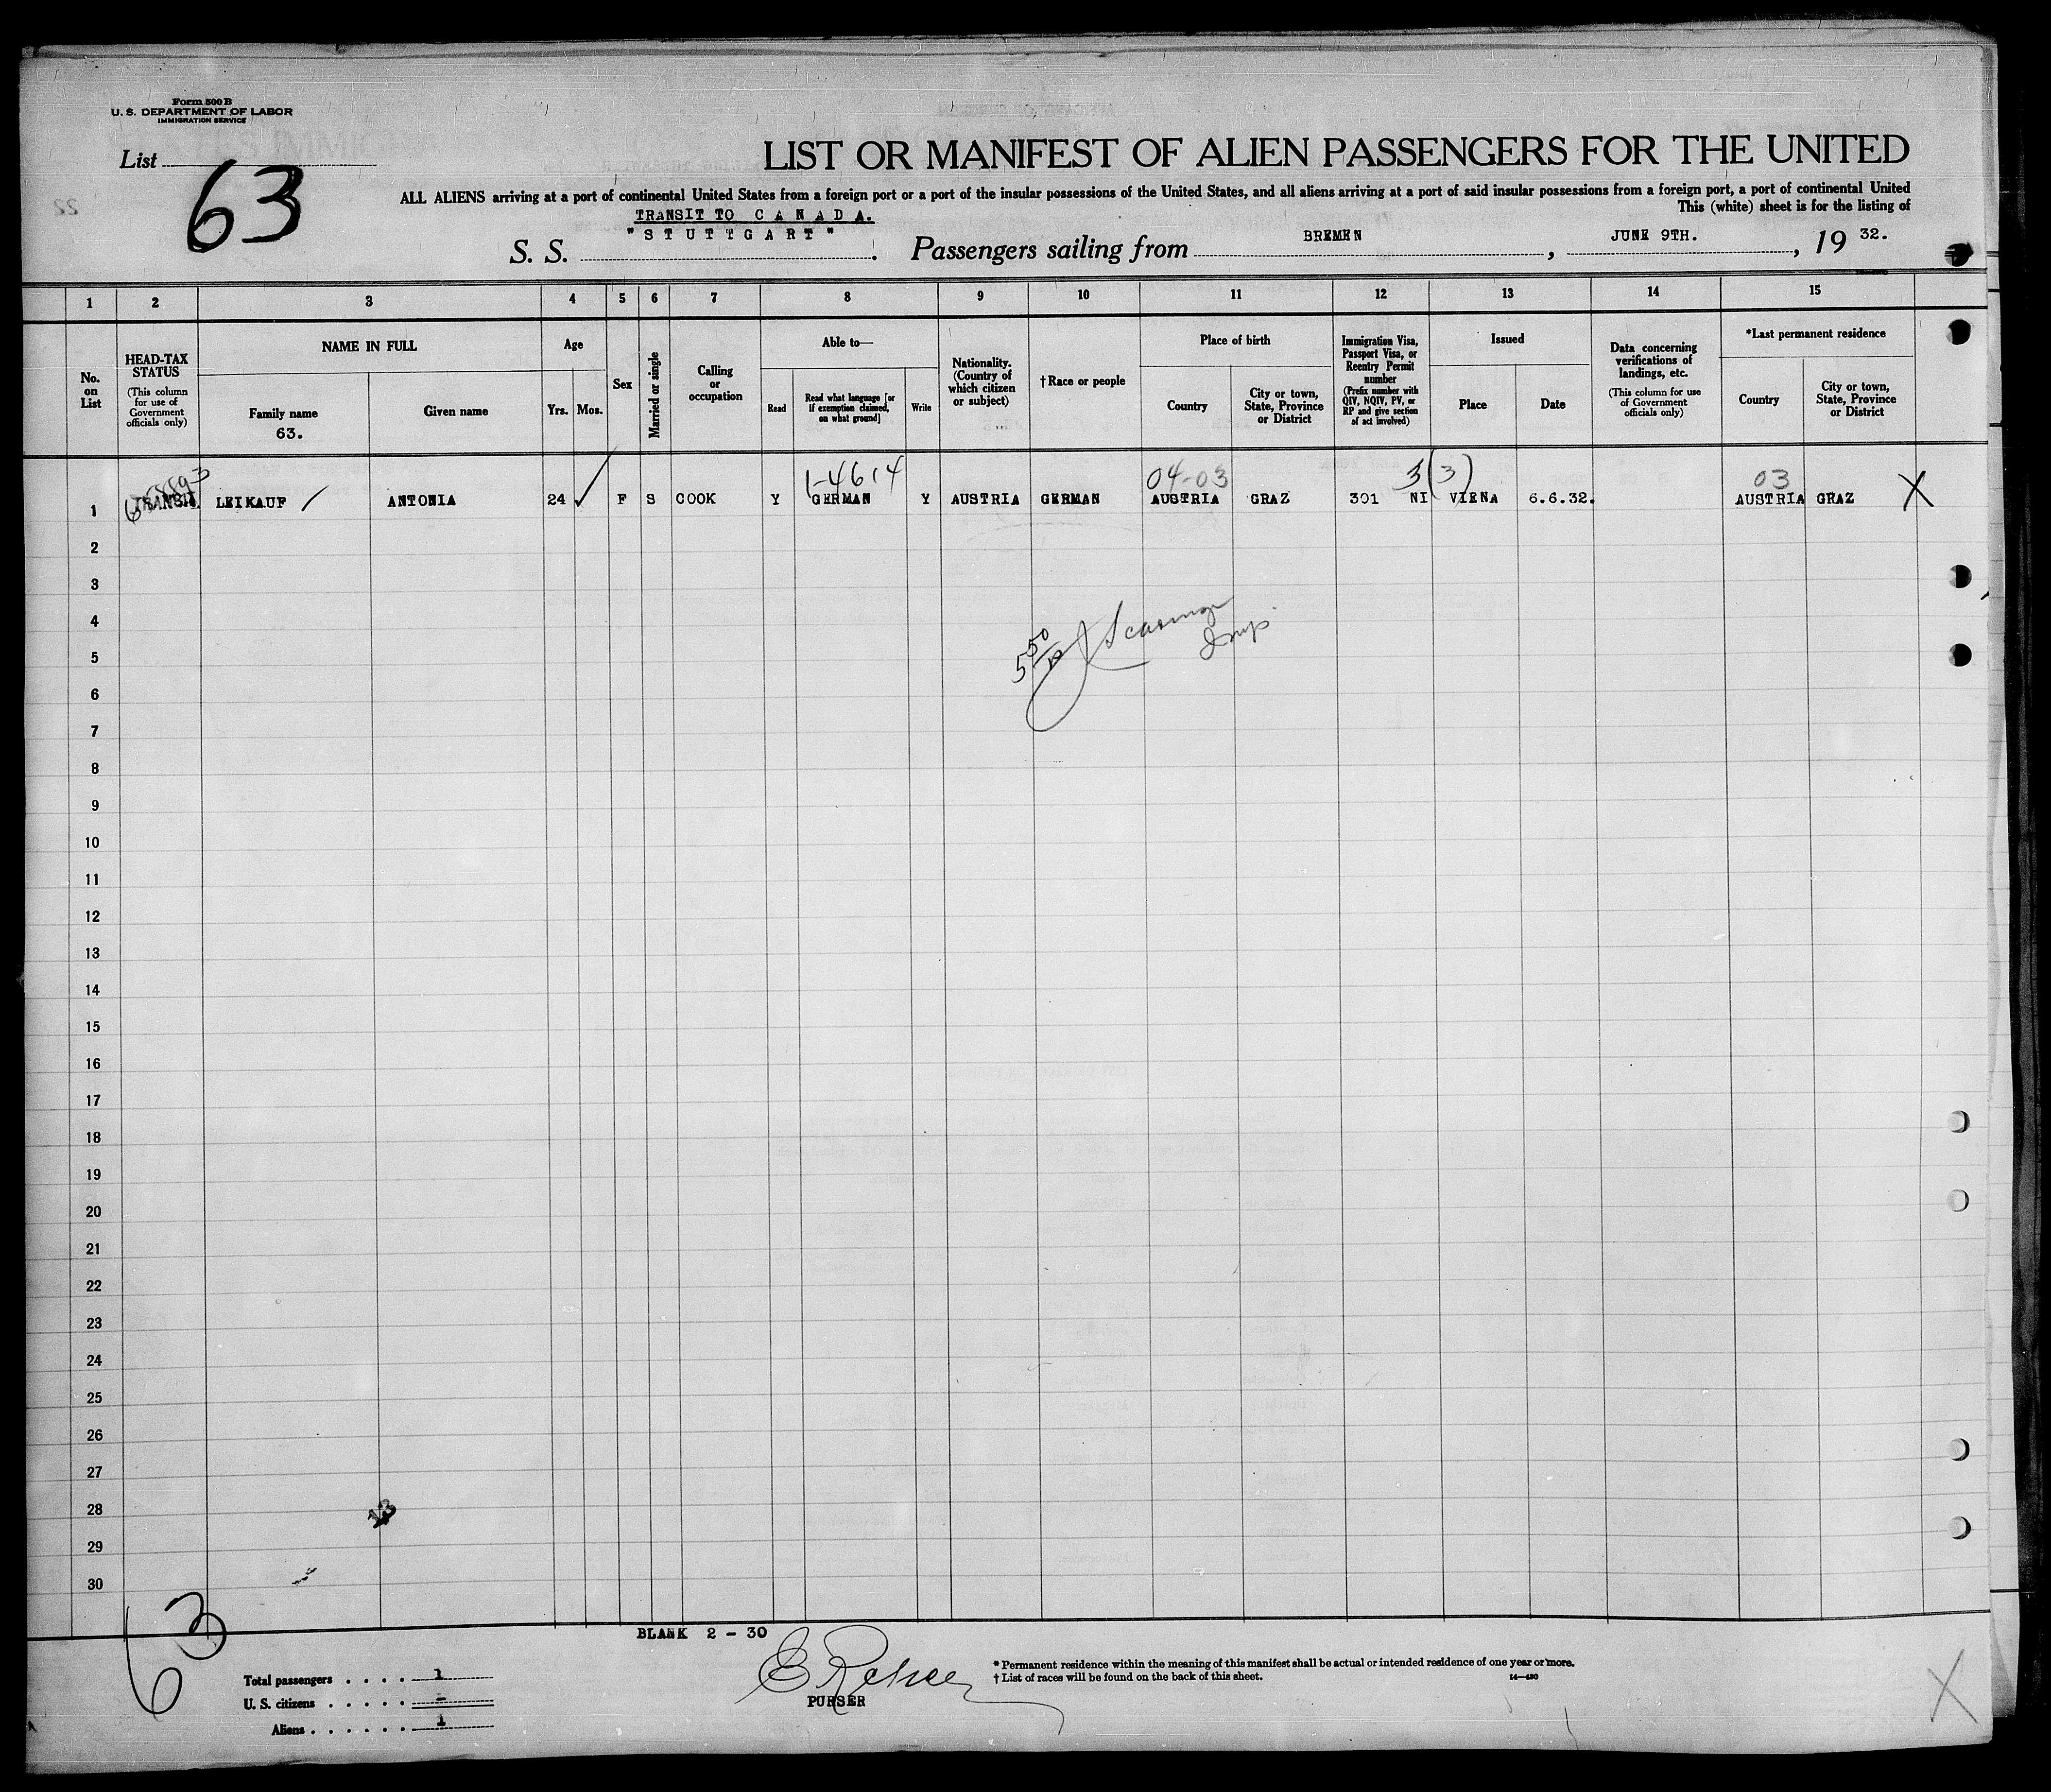 Form 500 B
U. S. DEPARTMENT OF LABOR
IMMIGRATION SERVICE
List
63
LIST OR MANIFEST OF ALIEN PASSENGERS FOR THE UNITED
ALL ALIENS arriving at a port of continental United States from a foreign port or a port of the insular possessions of the United States, and all aliens arriving at a port of said insular possessions from a foreign port, a port of continental United
This (white) sheet is for the listing of
TRANSIT TO CANADA.
S. S. "STUTTGART". Passengers sailing from BREMEN, JUNE 9TH., 1932.
1 2 3 4 5 6 7 8 9 10 11 12 13 14 15
No. on List
HEAD-TAX STATUS
(This column for use of Government officials only)
NAME IN FULL
Family name
63.
Given name
Age
Yrs. Mos.
Sex
Married or single
Calling or occupation
Able to—
Read
Read what language [or if exemption claimed, on what ground]
Write
Nationality. (Country of which citizen or subject)
† Race or people
Place of birth
Country
City or town, State, Province or District
Immigration Visa, Passport Visa, or Reentry Permit number
(Prefix number with QIV, NQIV, PV, or RP and give section of act involved)
Issued
Place
Date
Data concerning verifications of landings, etc.
(This column for use of Government officials only)
*Last permanent residence
Country
City or town, State, Province or District
1-4614 04-03 3(3) 03
1 TRANSIT LEIKAUF / ANTONIA 24 ✓ F S COOK Y GERMAN Y AUSTRIA GERMAN AUSTRIA GRAZ 301 NI VIENA 6.6.32. AUSTRIA GRAZ X
2
3
4
5
6
7
8
9
10
11
12
13
14
15
16
17
18
19
20
21
22
23
24
25
26
27
28
29
30
63
BLANK 2 - 30
Total passengers . . . . . 1
U. S. citizens . . . . . -
Aliens . . . . . . 1
PURSER
* Permanent residence within the meaning of this manifest shall be actual or intended residence of one year or more.
† List of races will be found on the back of this sheet.
14—430
X